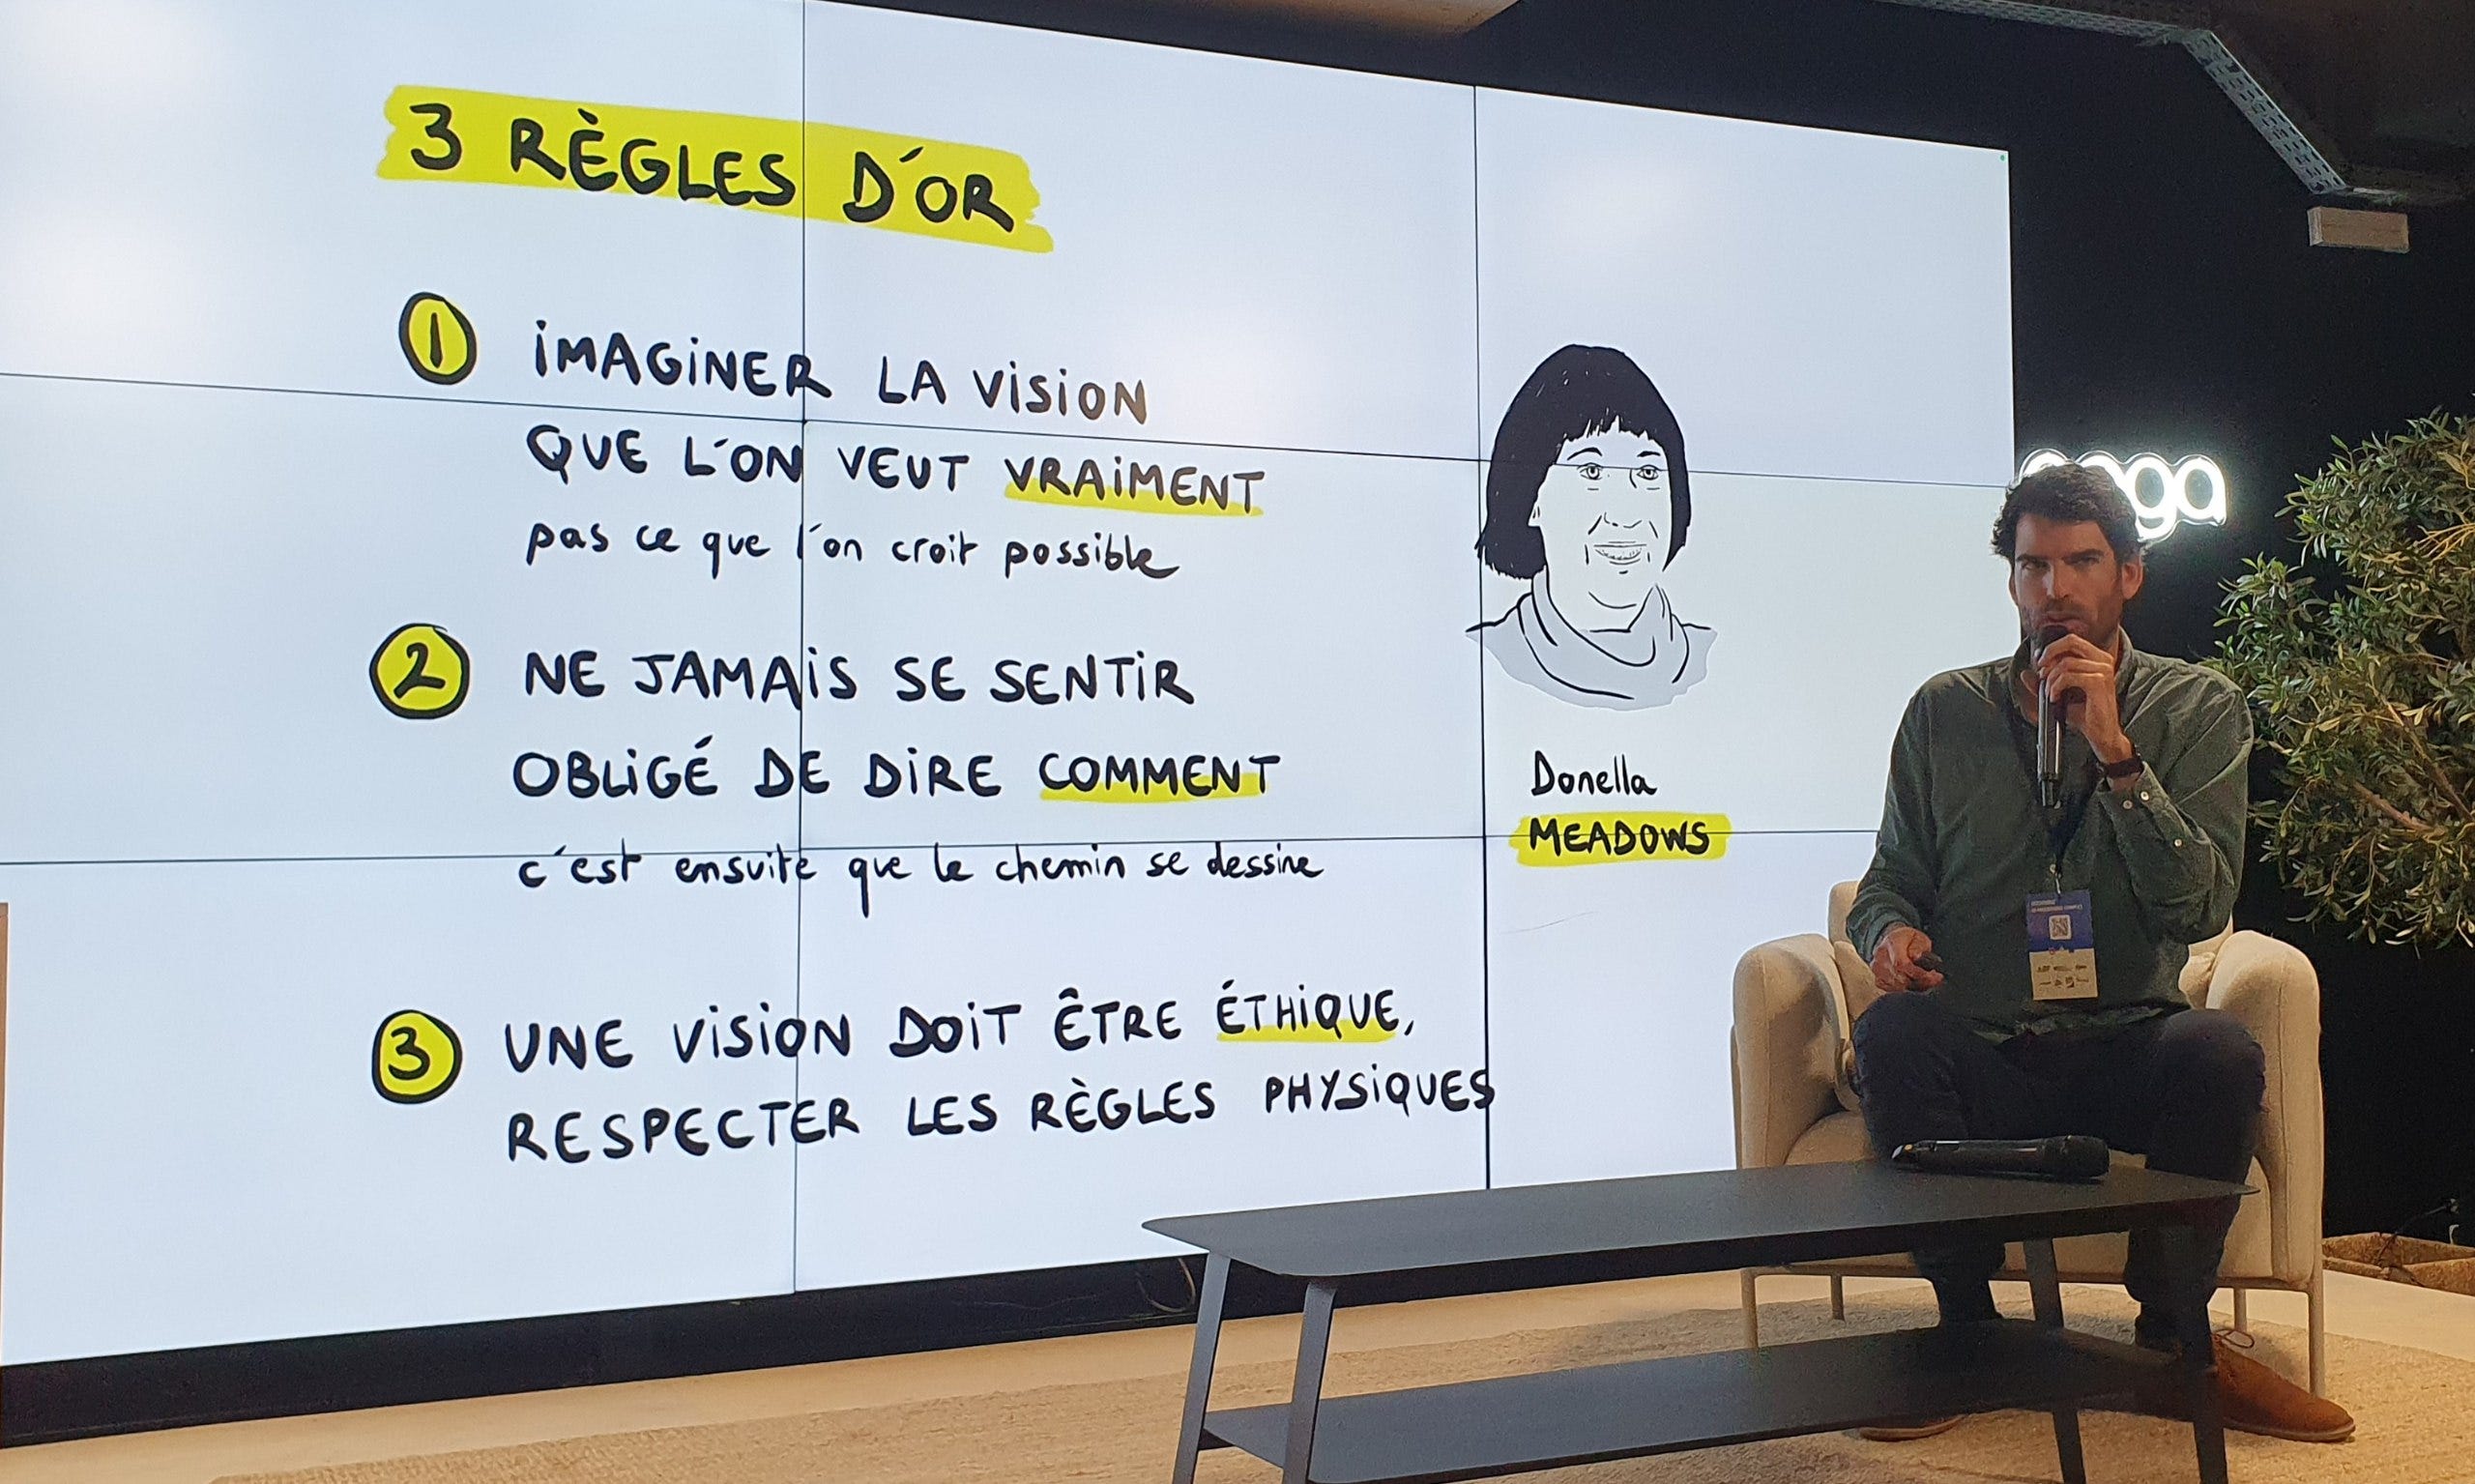 3 RÈGLES D'OR
1 IMAGINER LA VISION
QUE L'ON VEUT VRAIMENT
pas ce que l'on croit possible
2 NE JAMAIS SE SENTIR
OBLIGÉ DE DIRE COMMENT
c'est ensuite que le chemin se dessine
3 UNE VISION DOIT ÊTRE ÉTHIQUE,
RESPECTER LES RÈGLES PHYSIQUES
Donella
MEADOWS